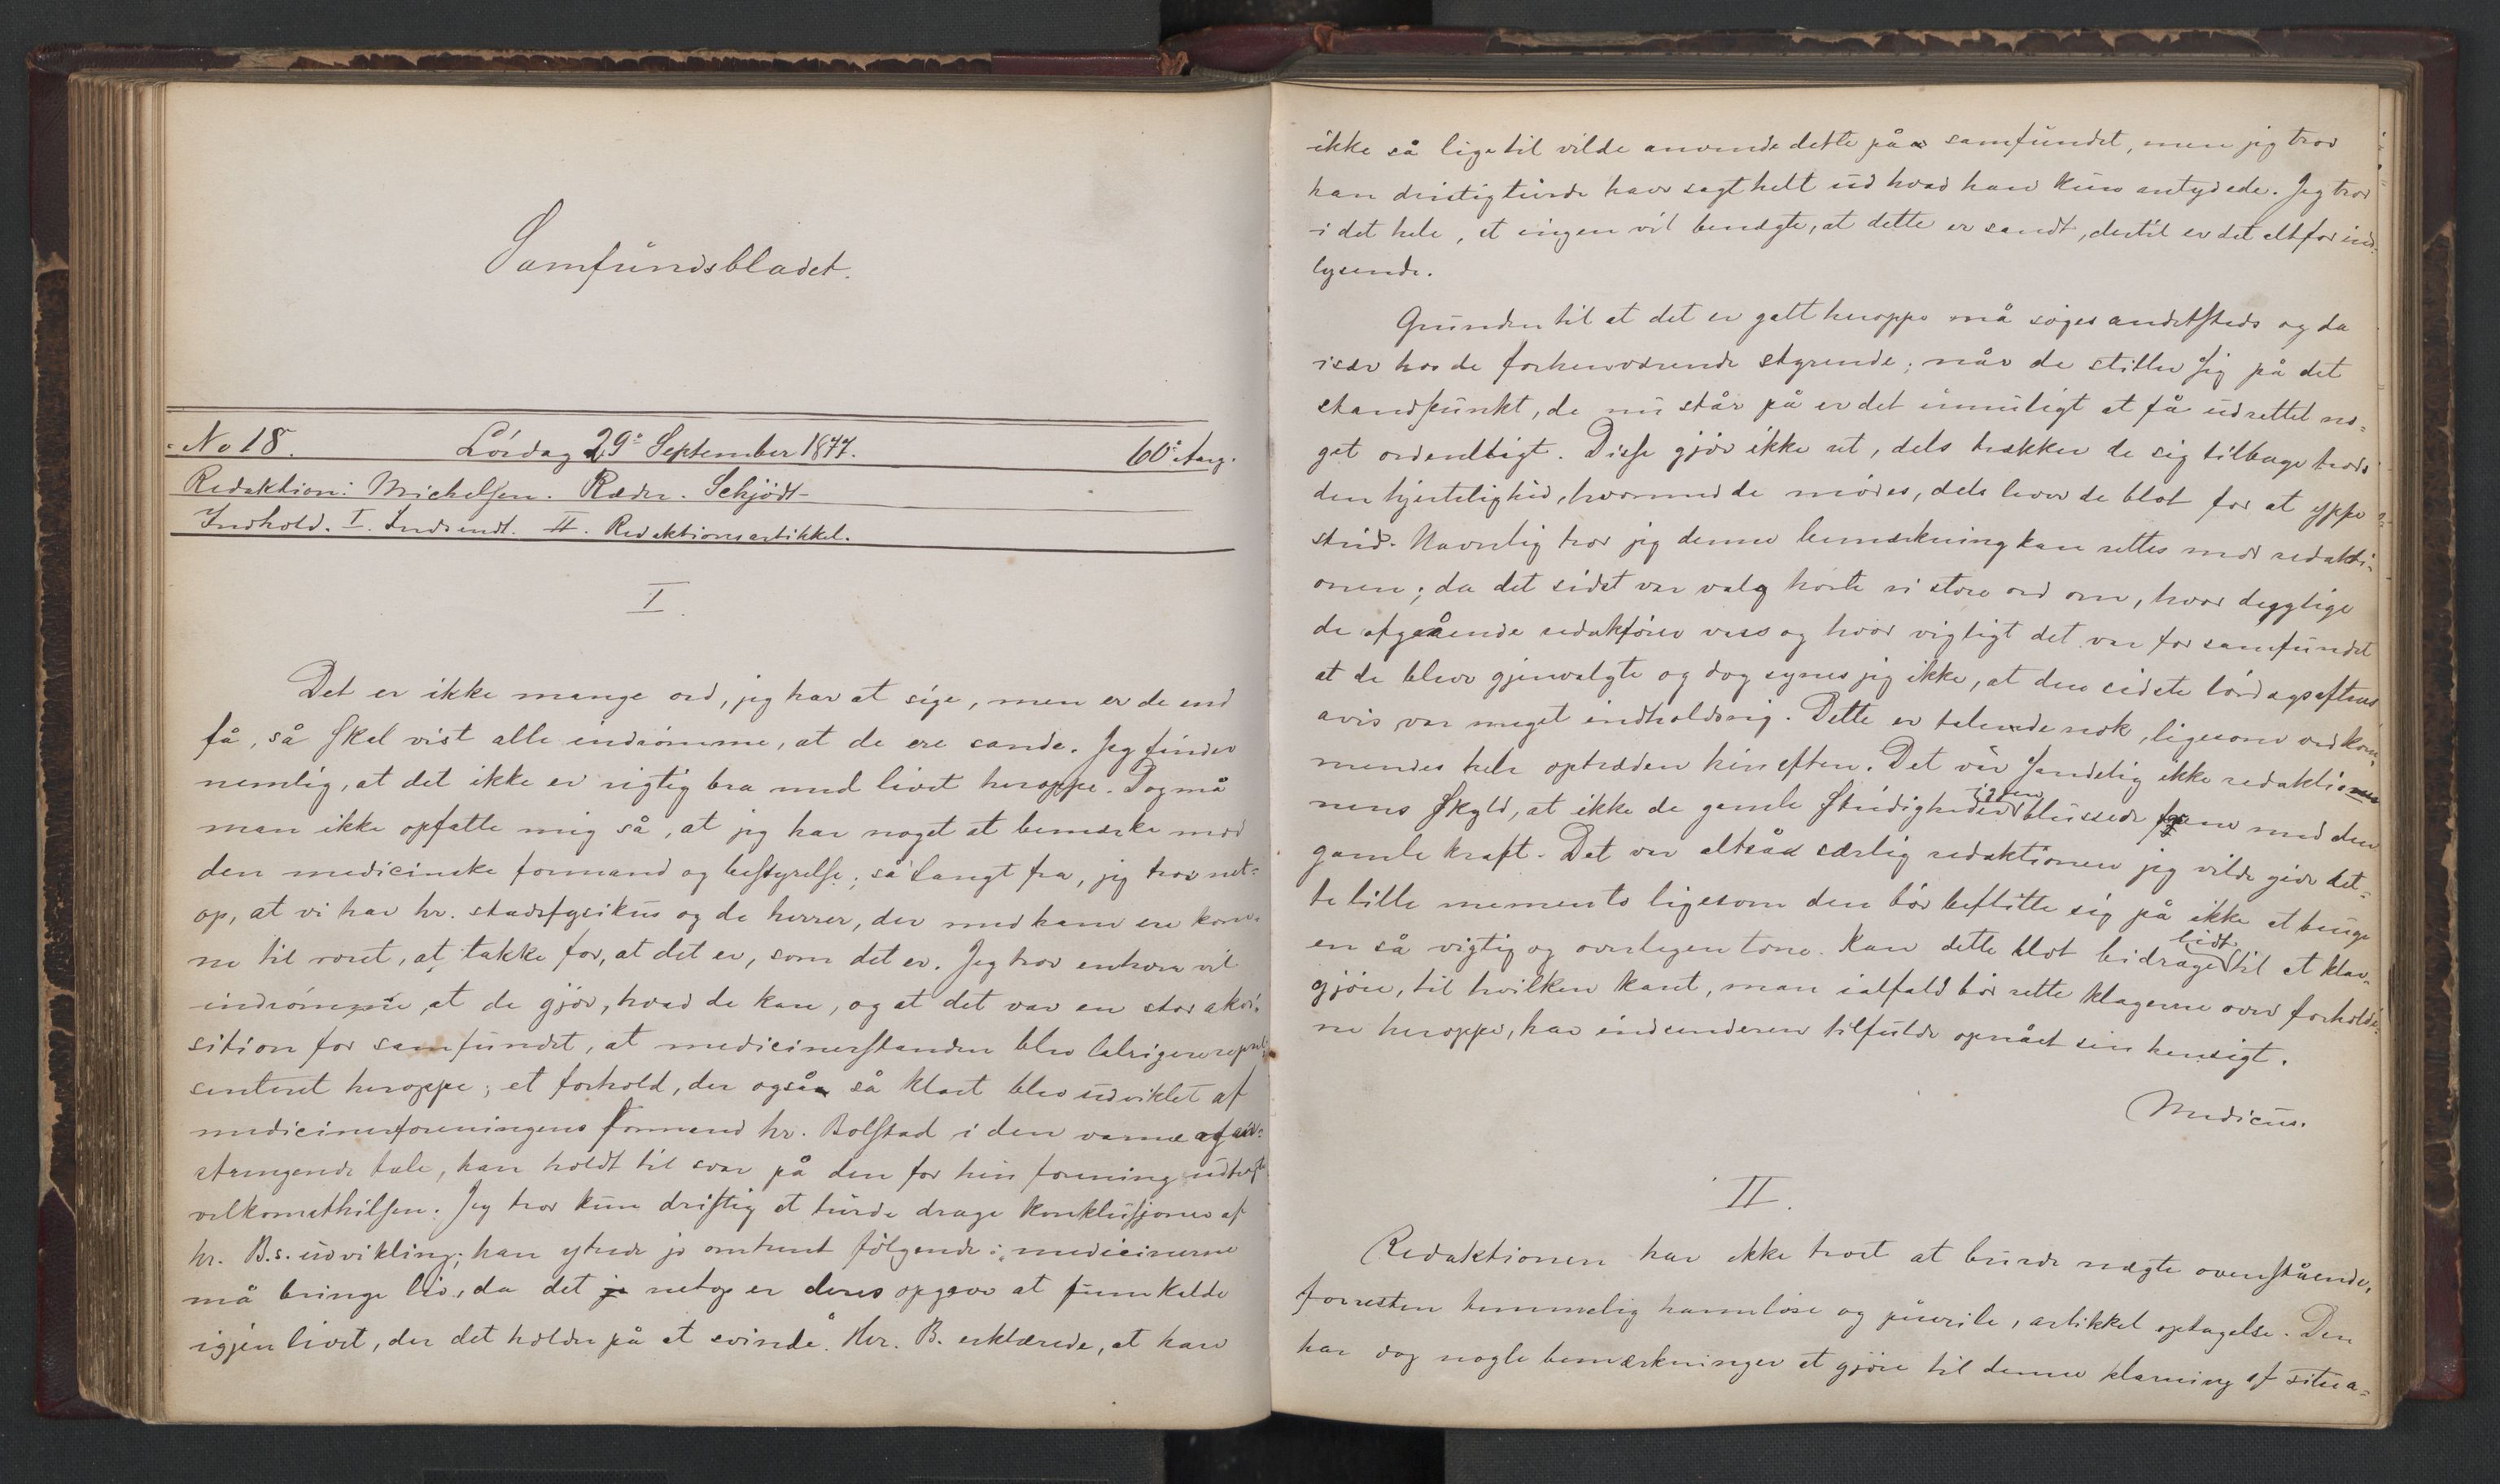 Samfundsbladet.
No 18. Lördag 29de September 1877. 60de Aarg.
Redaktion: Michelsen. Ræder. Schjödt
Indhold. I. Indsendt. II. Redaktionsartikkel.
I.
Det er ikke mange ord, jeg har at sige, men er de end
få, så skal vist alle indrömme, at de ere sande. Jeg finder
nemlig, at det ikke er rigtig bra med livet heroppe. Dog må
man ikke opfatte mig så, at jeg har noget at bemærke mod
den medicinske formand og bestyrelse; så langt fra, jeg tror net-
op, at vi har hr. stadsfysikus og de herrer, der med ham ere kom-
ne til roret, at takke for, at det er, som det er. Jeg tror enhver vil
indrömme, at de gjör, hvad de kan, og at det var en stor akvi-
sition for samfundet, at medicinerstanden blev talrigere repræ-
senteret heroppe; et forhold, der også så klart blev udviklet af
medicinerforeningens formand hr. Bolstad i den varme og an-
strængende tale, han holdt til svar på den for hin forening udbragte
velkomsthilsen. Jeg tror kun dristig at turde drage konklusjoner af
hr. B.s. udvikling; han ytrede jo omtrent fölgende: „medicinerne
må bringe liv, da det netop er deres opgave at fremkalde
igjen livet, der det holder på at svinde." Hr. B. erklærede, at han
ikke så lige til vilde anvende dette på samfundet, men jeg tror
han dristig turde have sagt helt ud hvad han kun antydede. Jeg tror
i det hele, at ingen vil benægte, at dette er sandt, dertil er det altfor ind-
lysende.
Grunden til at det er galt heroppe må söges andetsteds og da
især hos de forhenværende styrende; når de stiller sig på det
standpunkt, de nu står på er det umuligt at få udrettet no-
get ordentligt. Disse gjör ikke ret, dels trækker de sig tilbage trods
den hjertelighed, hvormed de mödes, dels lever de blot for at yppe
strid. Navnlig tror jeg denne bemærkning kan rettes mod redakti-
onen; da det sidst var valg hörte vi store ord om, hvor dygtige
de afgående redaktörer vare og hvor vigtigt det var for samfundet
at de bleve gjenvalgte og dog synes jeg ikke, at den sidste lördagsaftens
avis var meget indholdsrig. Dette er talende nok, ligesom vedkom-
mendes hele optræden hin aften. Det var sandelig ikke redaktio-
nens skyld, at ikke de gamle stridigheder igjen blussede frem med den
gamle kraft. Det var altså særlig redaktionen jeg vilde give det-
te lille memento ligesom den bör beflitte sig på ikke at bruge
en så vigtig og overlegen tone. Kan dette blot bidrage lidt til at klar-
gjöre, til hvilken kant, man ialfald bör rette klagerne over forholde-
ne heroppe, har indsenderen tilfulde opnået sin hensigt.
Medicus.
II.
Redaktionen har ikke troet at burde nægte ovenstående,
forresten temmelig harmlöse og puerile, artikkel optagelse. Den
har dog nogle bemærkninger at gjöre til denne klarning af situa-